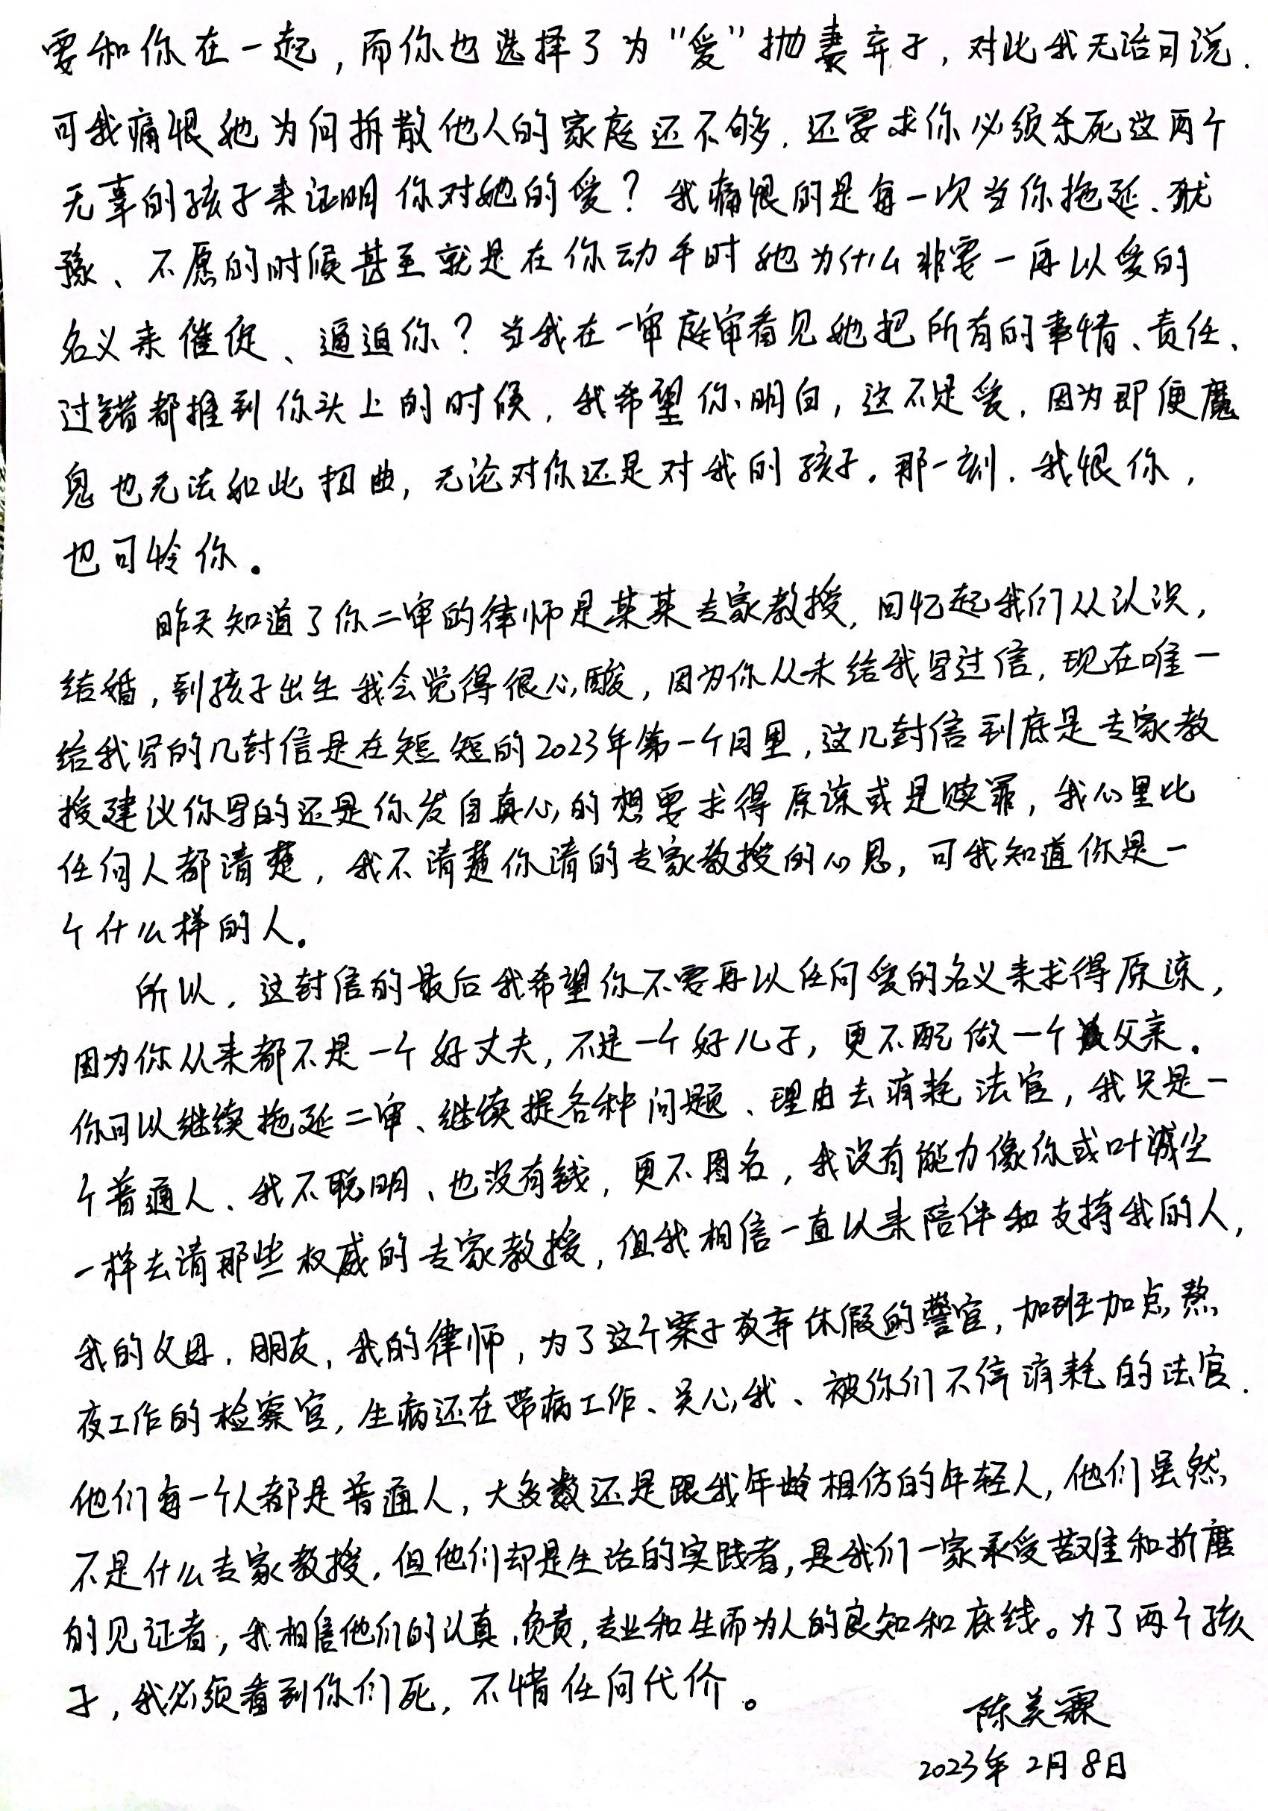 要和你在一起，而你也选择了为“爱”抛妻弃子，对此我无话可说.
可我痛恨她为何拆散他人的家庭还不够，还要求你必须杀死这两个
无辜的孩子来证明你对她的爱？我痛恨的是每一次当你拖延、犹
豫、不愿的时候甚至就是在你动手时她为什么非要一再以爱的
名义来催促、逼迫你？当我在一审庭审看见她把所有的事情、责任、
过错都推到你头上的时候，我希望你明白，这不是爱，因为即便魔
鬼也无法如此扭曲，无论对你还是对我的孩子。那一刻，我恨你，
也可怜你。
昨天知道了你二审的律师是某某专家教授，回忆起我们从认识，
结婚，到孩子出生我会觉得很心酸，因为你从未给我写过信，现在唯一
给我写的几封信是在短短的2023年第一个月里，这几封信到底是专家教
授建议你写的还是你发自真心的想要求得原谅或是赎罪，我心里比
任何人都清楚，我不清楚你请的专家教授的心思，可我知道你是一
个什么样的人。
所以，这封信的最后我希望你不要再以任何爱的名义来求得原谅，
因为你从来都不是一个好丈夫，不是一个好儿子，更不配做一个父亲。
你可以继续拖延二审、继续提各种问题、理由去消耗法官，我只是一
个普通人、我不聪明、也没有钱，更不图名，我没有能力像你或叶诚尘
一样去请那些权威的专家教授，但我相信一直以来陪伴和支持我的人，
我的父母，朋友，我的律师，为了这个案子放弃休假的警官，加班加点熬
夜工作的检察官，生病还在带病工作、关心我、被你们不停消耗的法官.
他们每一个人都是普通人，大多数还是跟我年龄相仿的年轻人，他们虽然
不是什么专家教授，但他们却是生活的实践者，是我们一家承受苦难和折磨
的见证者，我相信他们的认真，负责，专业和生而为人的良知和底线。为了两个孩
子，我必须看到你们死，不惜任何代价。
陈美霖
2023年2月8日